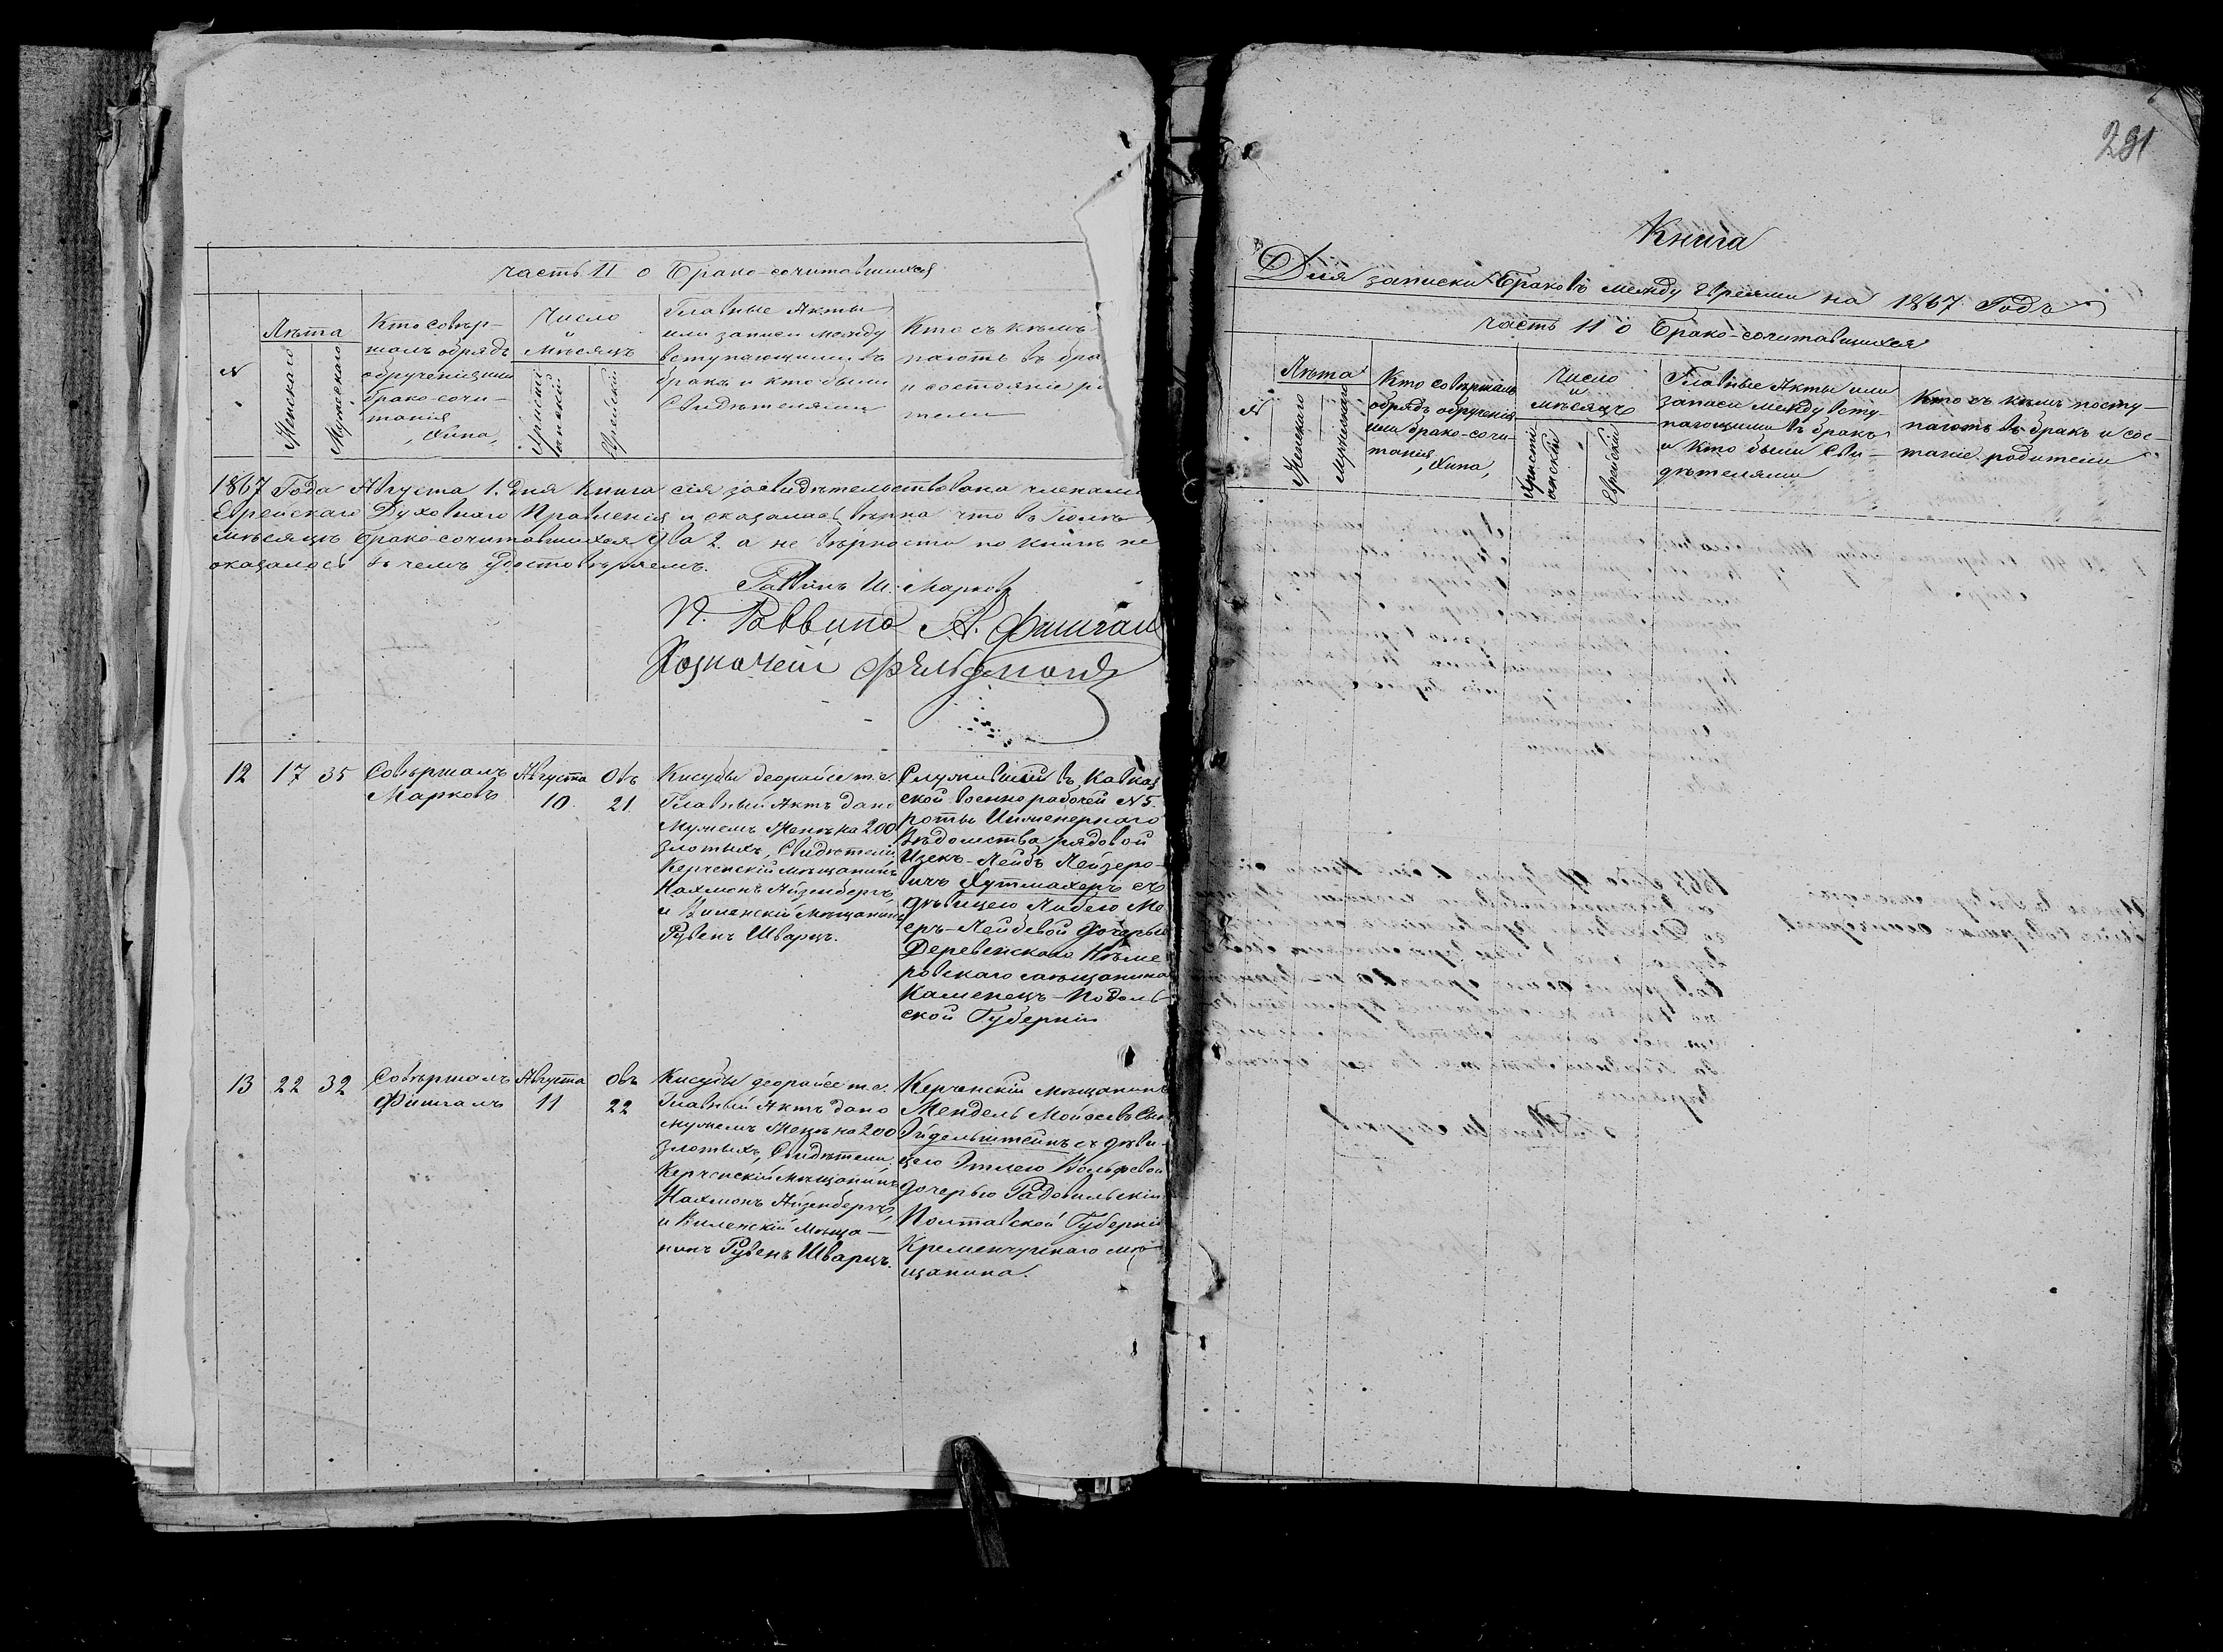 часть II о Брако-сочитавшихся
№
Лѣта
Женскаго
Мужескаго
Кто совѣр-
шалъ обрядъ
обрученія или
брако-сочи-
танія
Хипа,
Число
и
мѣсяцъ
Христі
анскій
Еврейскій
Главные Акты
или записи между
вступающими въ
бракъ и кто были
Свидѣтелями
Кто съ кѣмъ
паютъ въ бра
и состояніе ро
тели
1867 Года Августа 1. дня Книга сія засвидѣтельствована членами
Еврейскаго Духовнаго Правленія и оказалась вѣрна что въ Іюлѣ
мѣсяцѣ брако-сочитавшихся два 2. а не вѣрности по книгѣ не
оказалось въ чемъ Удостовѣряемъ.
Раввинъ Ш. Марковъ
П. Раввина А. Фишгал
Казначей Фельдман
12 17 35
Совѣршалъ
Марковъ
Августа
10
Овъ
21
Кисубы деорайсе т.е.
Главный Актъ дано
Мужемъ Женѣ на 200
злотыхъ, Свидѣтели
Керченскій мѣщанинъ
Нахманъ Айзенбергъ
и Виленскій Мѣщанинъ
Рувенъ Шварцъ.
Служившій въ Кавказ
ской военно рабочей №5
роты Инженернаго
Вѣдомства рядовой
Ицекъ-Лейбъ Лейзеро-
вичъ Хутмахеръ съ
дѣвицею Либею Ме
еръ-Лейбевой дочерью
Деревенскаго
ровскаго мѣщанина
Каменецъ-Подоль
ской Губерніи
13 22 32
Совѣршалъ
Фишгалъ
Августа
11
Овъ
22
Кисубы деорайсе т.е.
Главный Актъ дано
мужемъ Женѣ на 200
злотыхъ, Свидѣтели
Керченскій мѣщанинъ
Нахманъ Айзенбергъ,
и Виленскій Мѣща-
нинъ Рувенъ Шварцъ.
Керченскій мѣщанинъ
Мендель Мойсеевъ сынъ
Эйдельштейнъ съ дѣви-
цею Этлею Вольфовой
дочерью Радовильскій
Полтавской Губерніи
Кременчугскаго мѣ
щанина.
281
Книга
Для записки Браковъ между Евреями на 1867 Годъ
часть II о Брако-сочитавшихся
№
Лѣта
Женскаго
Мужескаго
Кто совѣршалъ
обрядъ обрученія
или брако-сочи-
танія
Хипа,
Число
и
мѣсяцъ
Христі
анскій
Еврейскій
Главные Акты или
записи между всту-
пающими въ бракъ
и кто были Сви-
дѣтелями
Кто съ кѣмъ посту-
паютъ въ бракъ и сос-
таніе родители